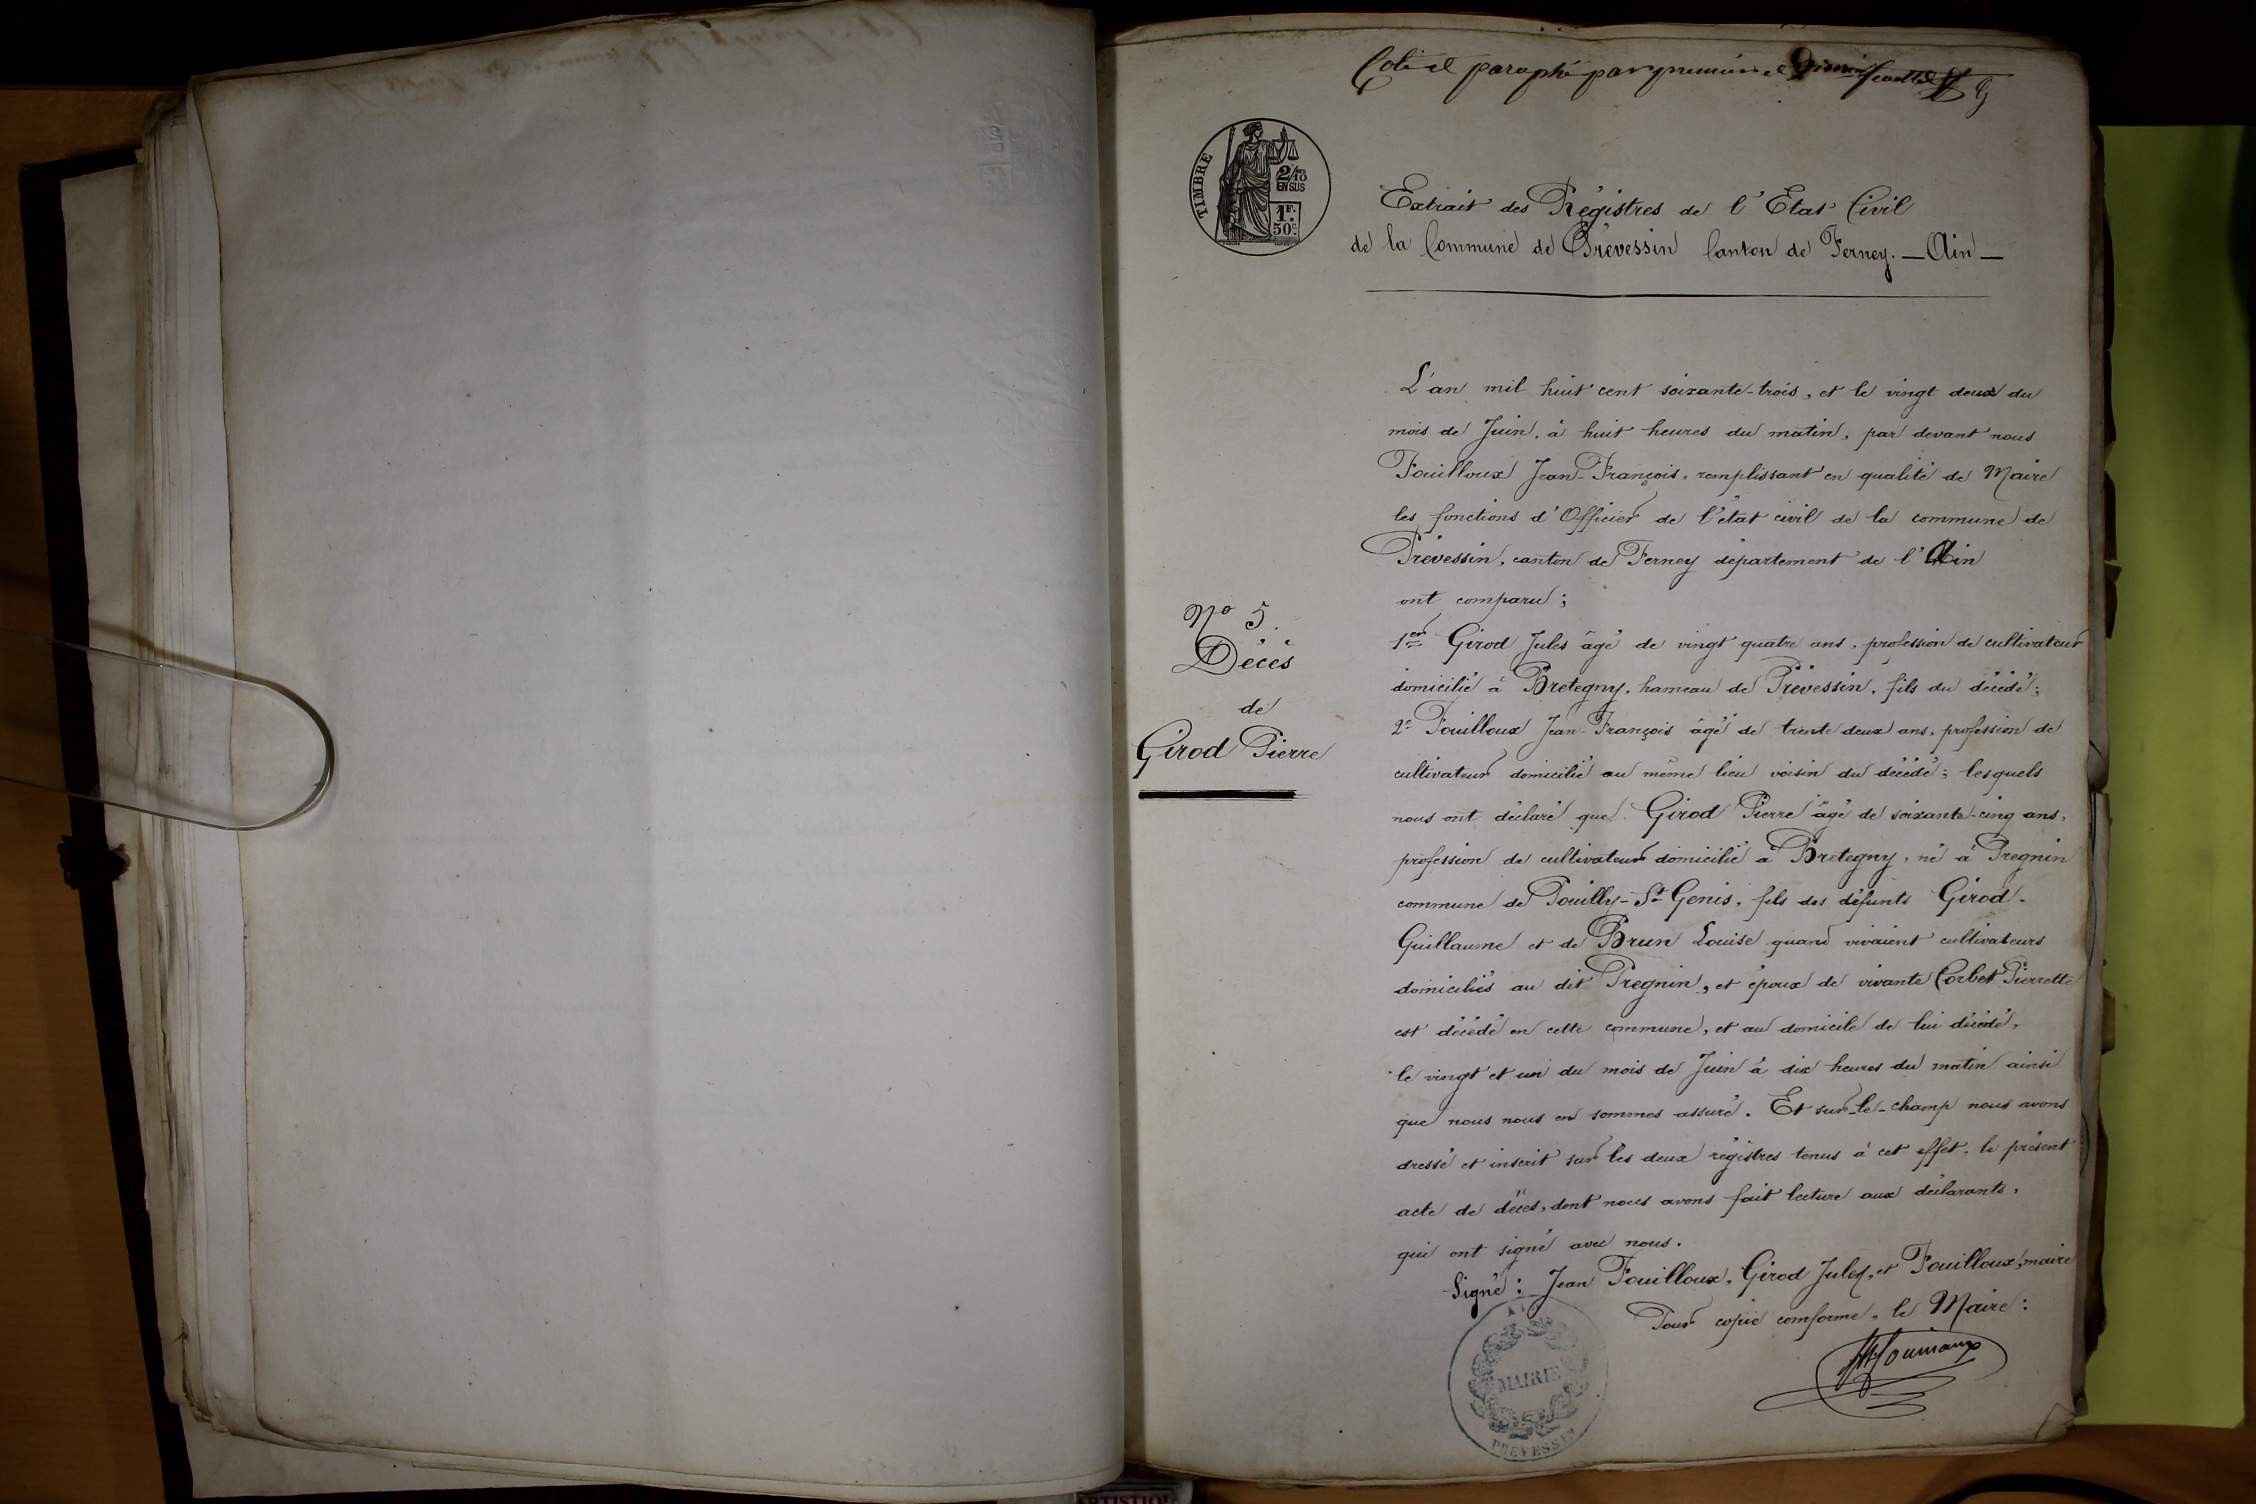 Coté et paraphé par premier et
TIMBRE
2/10
EN SUS
1F.
50C.
Extrait des Régistres de l'Etat Civil
de la Commune de Prévessin Canton de Ferney. — Ain —
L'an mil huit cent soixante-trois, et le vingt deux du
mois de Juin, à huit heures du matin, par devant nous
Fouilloux Jean-François, remplissant en qualité de Maire
les fonctions d'Officier de l'état civil de la commune de
Prévessin, canton de Ferney département de l'Ain
ont comparu;
Nº 5.
Décès
de
Girod Pierre
1er Girod Jules âgé de vingt quatre ans, profession de cultivateur
domicilié à Bretegny, hameau de Prévessin, fils du décédé;
2e Fouilloux Jean-François âgé de trente deux ans, profession de
cultivateur domicilié au même lieu voisin du décédé; lesquels
nous ont déclaré que Girod Pierre âgé de soixante-cinq ans,
profession de cultivateur domicilié à Bretegny, né à Pregnin
commune de Pouilly-St Genis, fils des défunts Girod-
Guillaume et de Brun Louise quand vivaient cultivateurs
domiciliés au dit Pregnin, et époux de vivante Corbet Pierrette
est décédé en cette commune, et au domicile de lui décédé,
le vingt et un du mois de Juin à dix heures du matin ainsi
que nous nous en sommes assuré. Et sur-le-champ nous avons
dressé et inscrit sur les deux régistres tenus à cet effet, le présent
acte de décès, dont nous avons fait lecture aux déclarants,
qui ont signé avec nous.
Signé: Jean Fouilloux, Girod Jules, et Fouilloux, maire
Pour copie comforme, le Maire:
MAIRIE
PREVESSIN